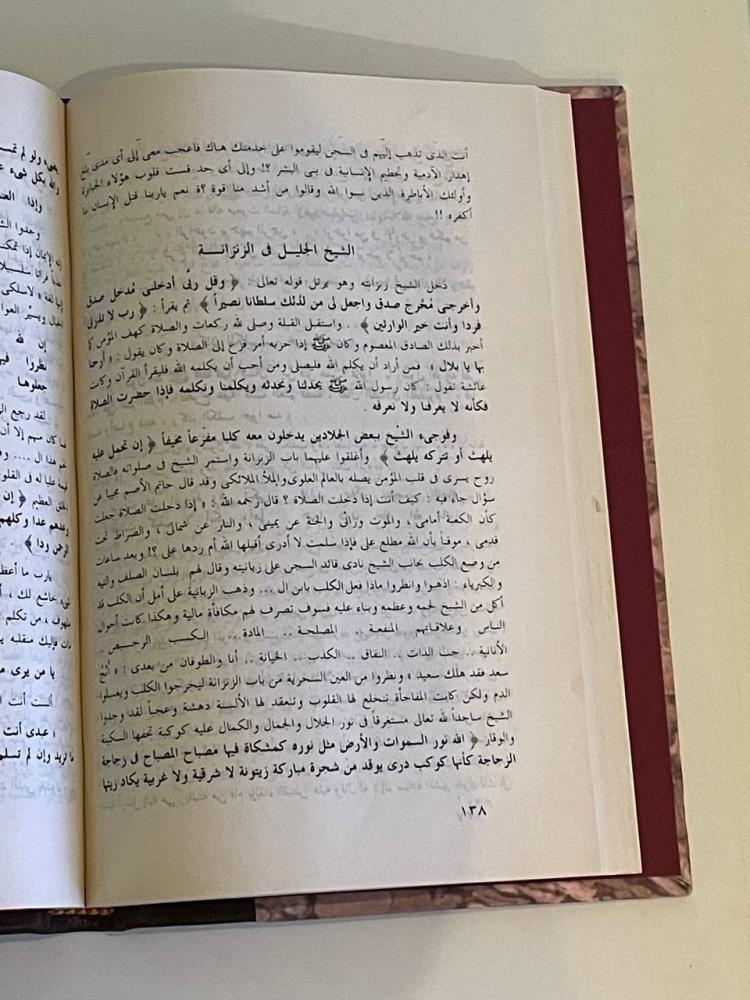 أنت الذى تذهب إليهم فى السجن ليقوموا على خدمتك هناك فاعجب معى إلى أى مدى بلغ
إهدار الآدمية وتحطيم الإنسانية فى بنى البشر ؟! وإلى أى حد قست قلوب هؤلاء الجبابرة
وأولئك الأباطرة الذين نسوا الله وقالوا من أشد منا قوة ؟ نعم ياربنا قتل الإنسان ما
أكفره !!
الشيخ الجليل فى الزنزانة
دخل الشيخ زنزانته وهو يرتل قوله تعالى : ﴿ وقل ربى أدخلنى مُدخل صدق
وأخرجنى مُخرج صدق واجعل لى من لدنك سلطانا نصيراً ﴾ ثم يقرأ : ﴿ رب لا تذرنى
فردا وأنت خير الوارثين ﴾ .. واستقبل القبلة وصلى لله ركعات والصلاة كهف المؤمن كما
أخبر بذلك الصادق المعصوم وكان ﷺ إذا حزبه أمر فزع إلى الصلاة وكان يقول : « أرحنا
بها يا بلال » فمن أراد أن يكلم الله فليصلى ومن أحب أن يكلمه الله فليقرأ القرآن وكانت
عائشة تقول : كان رسول الله ﷺ يحدثنا ونحدثه ويكلمنا ونكلمه فإذا حضرت الصلاة
فكأنه لا يعرفنا ولا نعرفه .
وفوجىء الشيخ ببعض الجلادين يدخلون معه كلبا مفزعاً مخيفاً ﴿ إن تحمل عليه
يلهث أو تتركه يلهث ﴾ وأغلقوا عليهما باب الزنزانة واستمر الشيخ فى صلواته فالصلاة
روح يسرى فى قلب المؤمن يصله بالعالم العلوى والملأ الملائكى وقد قال حاتم الأصم مجيبا عن
سؤال جاء فيه : كيف أنت إذا دخلت الصلاة ؟ قال رحمه الله : « إذا دخلت الصلاة جعلت
كأن الكعبة أمامى ، والموت ورائى والجنة عن يمينى ، والنار عن شمالى ، والصراط تحت
قدمى ، موقناً بأن الله مطلع على فإذا سلمت لا أدرى أقبلها الله أم ردها على ؟! وبعد ساعات
من وضع الكلب بجانب الشيخ نادى قائد السجن على زبانيته وقال لهم بلسان الصلف والتيه
والكبرياء : اذهبوا وانظروا ماذا فعل الكلب بابن ال ... وذهب الزبانية على أمل أن الكلب قد
أكل من الشيخ لحمه وعظمه وبناء عليه فسوف تصرف لهم مكافأة مالية وهكذا كانت أحوال
الناس وعلاقاتهم المنفعة .. المصلحة .. المادة .. الكسب الرخيص
الأنانية .. حب الذات .. النفاق .. الكذب .. الخيانة .. أنا والطوفان من بعدى : « أنجُ
سعد فقد هلك سعيد » ونظروا من العين السحرية من باب الزنزانة ليخرجوا الكلب ويغسلوا
الدم ولكن كانت المفاجأة تنخلع لها القلوب وتنعقد لها الألسنة دهشة وعجباً لقد وجدوا
الشيخ ساجداً لله تعالى مستغرقاً فى نور الجلال والجمال والكمال عليه كوكبة تحفها السكينة
والوقار ﴿ الله نور السموات والأرض مثل نوره كمشكاة فيها مصباح المصباح فى زجاجة
الزجاجة كأنها كوكب درى يوقد من شجرة مباركة زيتونة لا شرقية ولا غربية يكاد زيتها
١٣٨